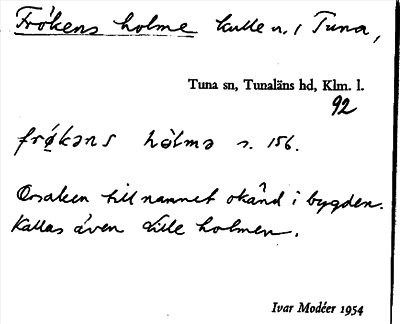 Frökens holme kulle n. i Tuna,
Tuna sn, Tunaläns hd, Klm. l.
92
frø̀kəns hòlmə s. 156.
Orsaken till namnet okänd i bygden.
Kallas även Lille holmen.
Ivar Modéer 1954